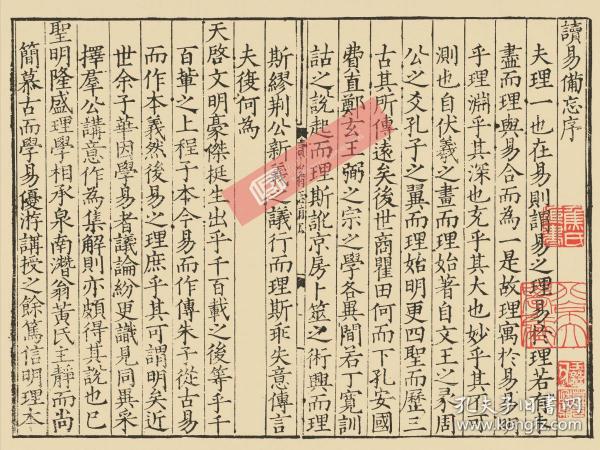 讀易備忘序
夫理一也在易則謂易之理易於理若有未
盡而理與易合而為一是故理寓於易易明
乎理淵乎其深也充乎其大也妙乎其不可
測也自伏羲之畫而理始著自文王之彖周
公之爻孔子之翼而理始明更四聖而歷三
古其所傳遠矣後世商瞿田何而下孔安國
費直鄭玄王弼之宗之學各異間若丁寬訓
詁之說起而理斯訛京房卜筮之術興而理
斯繆荆公新義之議行而理斯乖失意傳言
夫復何為
天啓文明豪傑挺生出乎千百載之後等乎千
百軰之上程子本今易而作傳朱子從古易
而作本義然後易之理庶乎其可謂明矣近
世余子華因學易者議論紛更識見同異采
擇羣公講意作為集解則亦頗得其說也已
聖明隆盛理學相承泉南濳翁黃氏主靜而尚
簡慕古而學易優游講授之餘篤信明理本
孔夫子旧书网